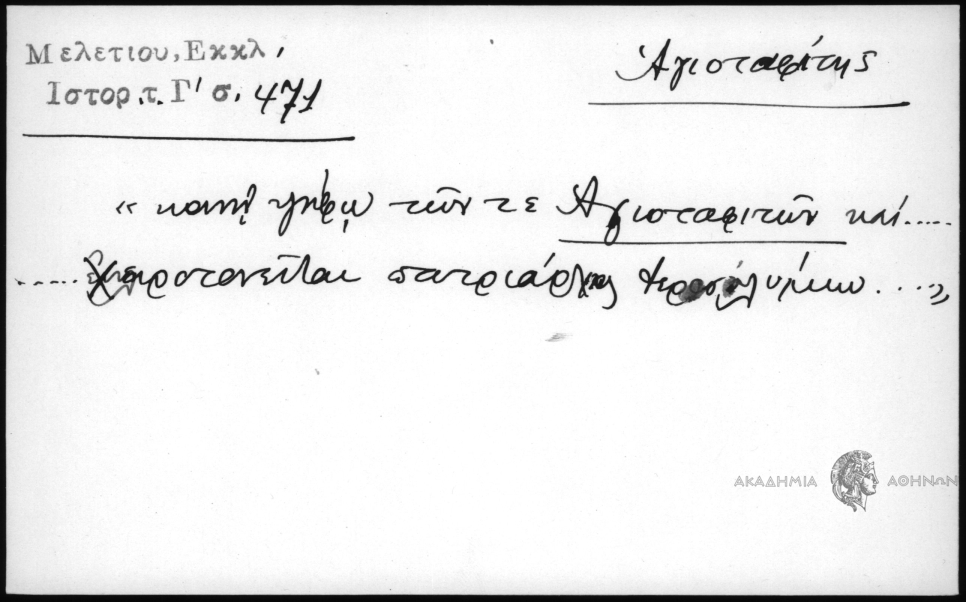 Μελετίου, Εκκλ.
Ιστορ. τ. Γ' σ. 471
Ἁγιοταφίτης
« κοινῇ ψήφῳ τῶν τε Ἁγιοταφιτῶν καί.....
..... χειροτονεῖται πατριάρχης Ἱεροσολύμων ....»
ΑΚΑΔΗΜΙΑ ΑΘΗΝΩΝ